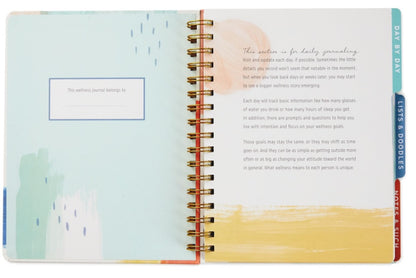 This wellness journal belongs to
This section is for daily journaling.
Visit and update each day, if possible. Sometimes the little
details you record won't seem that notable in the moment,
but when you look back days or weeks later, you may start
to see a bigger wellness story emerging.
Each day will track basic information like how many glasses
of water you drink or how many hours of sleep you get.
In addition, there are prompts and questions to help you
live with intention and focus on your wellness goals.
Those goals may stay the same, or they may shift as time
goes on. And they can be as simple as getting outside more
often or as big as changing your attitude toward the world
in general. What wellness means to each person is unique.
DAY BY DAY
LISTS & DOODLES
NOTES & SUCH